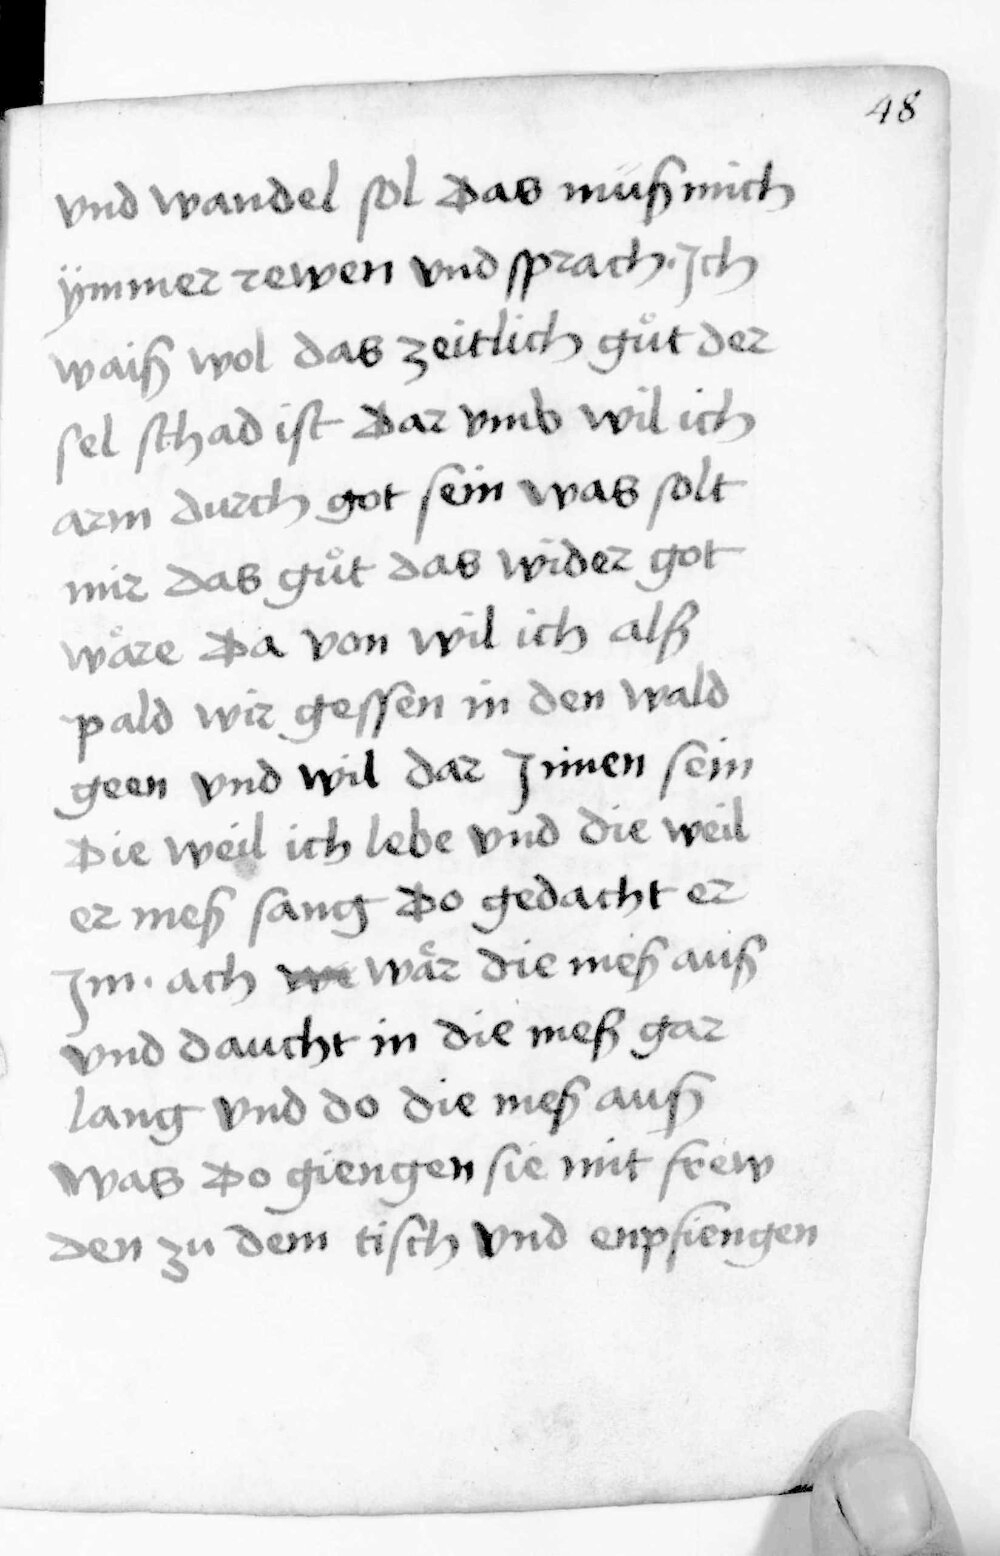 48
vnd wandel sol Das muͤß mich
ÿmmer rewen vnd sprach. Jch
waiß wol das zeitlich guͦt der
sel schad ist Dar vmb wil ich
arm durch got sein was solt
mir das guͦt das wider got
waͤre Da von wil ich alß
pald wir gessen in den wald
geen vnd wil dar Jnnen sein
Die weil ich lebe vnd die weil
er meß sang Do gedacht er
Jm. ach waͤr die meß auß
vnd daucht in die meß gar
lang vnd do die meß auß
was Do giengen sie mit frew
den zu dem tisch vnd enpfiengen